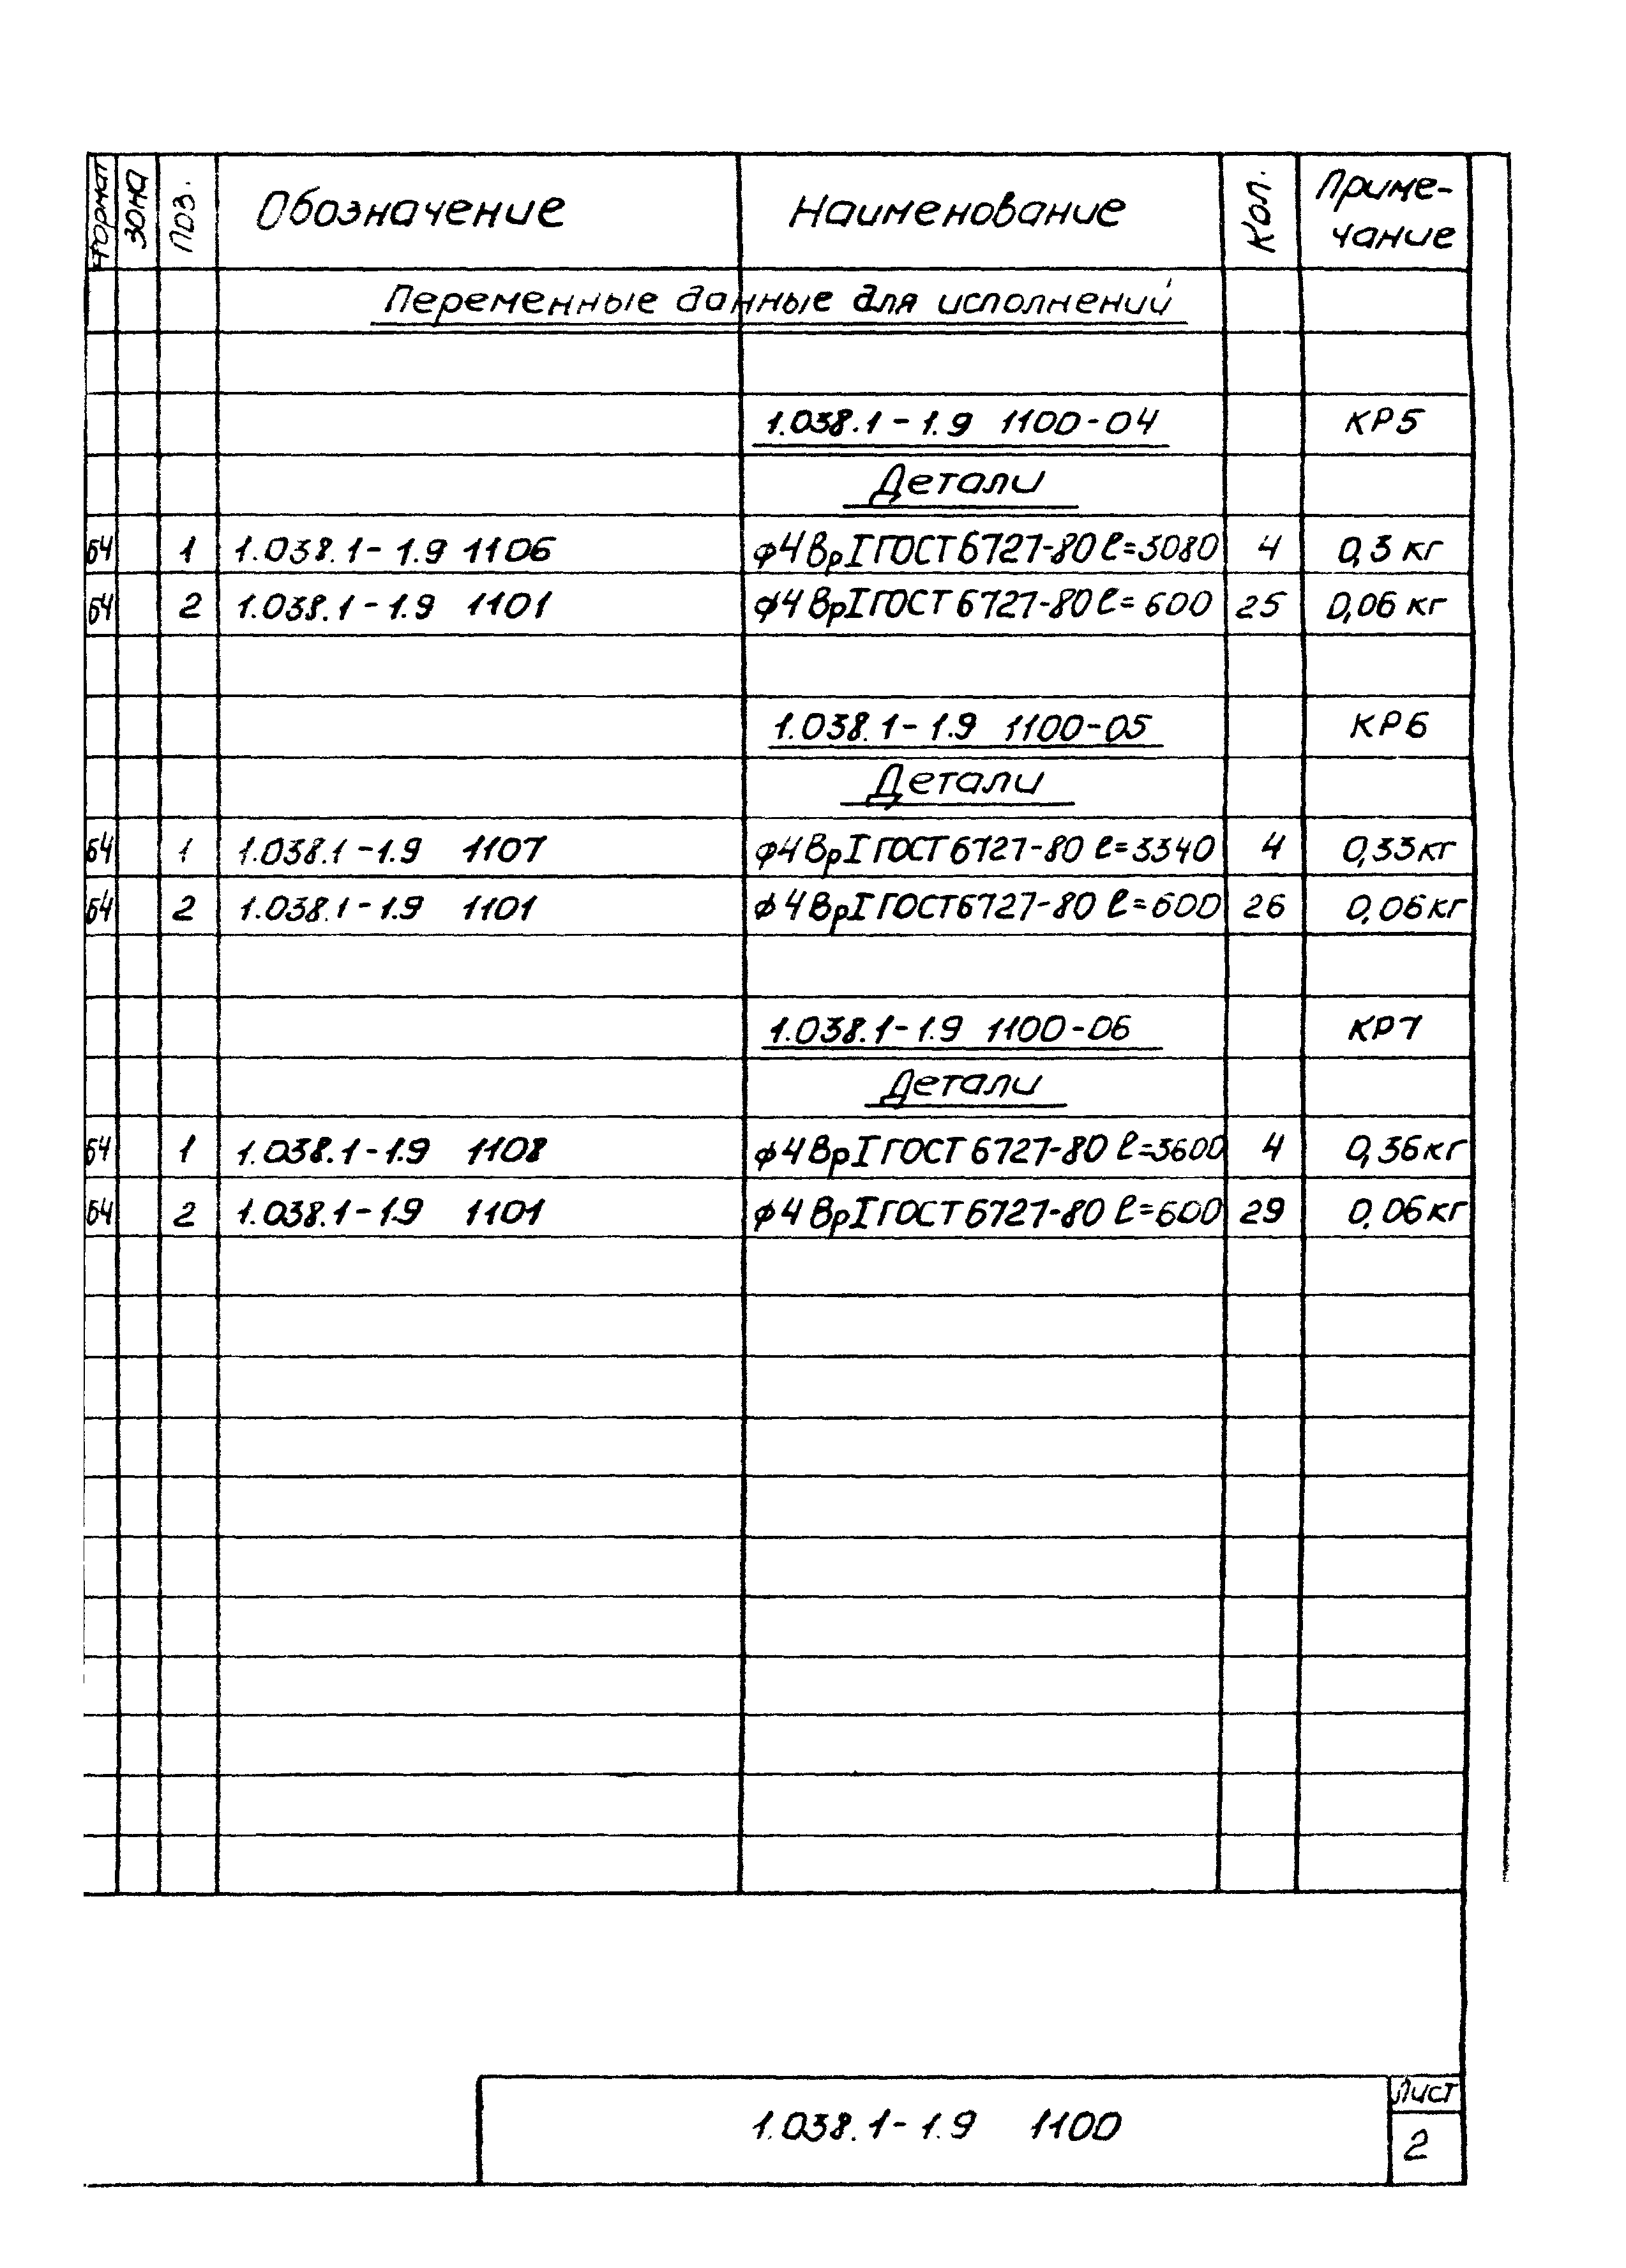 Формат Зона Поз. Обозначение Наименование Кол. Приме-
чание
Переменные данные для исполнений
1.038.1-1.9 1100-04 КР5
Детали
БЧ 1 1.038.1-1.9 1106 ф4ВрI ГОСТ 6727-80 ℓ=3080 4 0,3 кг
БЧ 2 1.038.1-1.9 1101 ф4ВрI ГОСТ 6727-80 ℓ=600 25 0,06 кг
1.038.1-1.9 1100-05 КР6
Детали
БЧ 1 1.038.1-1.9 1107 ф4ВрI ГОСТ 6727-80 ℓ=3340 4 0,33 кг
БЧ 2 1.038.1-1.9 1101 ф4ВрI ГОСТ 6727-80 ℓ=600 26 0,06 кг
1.038.1-1.9 1100-06 КР7
Детали
БЧ 1 1.038.1-1.9 1108 ф4ВрI ГОСТ 6727-80 ℓ=3600 4 0,36 кг
БЧ 2 1.038.1-1.9 1101 ф4ВрI ГОСТ 6727-80 ℓ=600 29 0,06 кг
1.038.1-1.9 1100
Лист
2